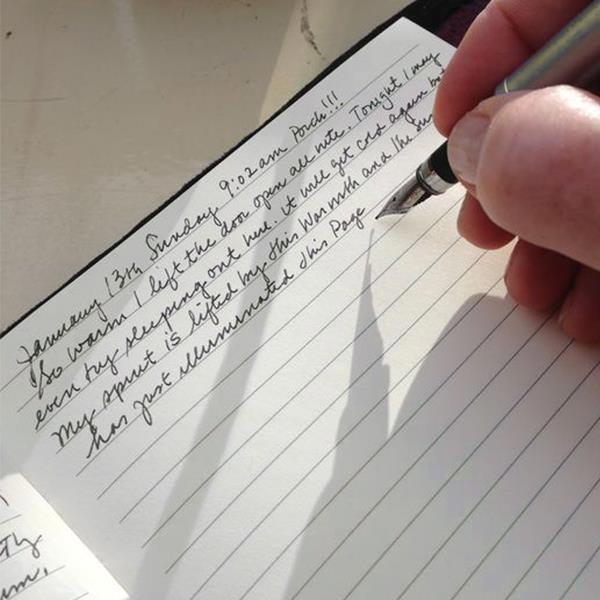 January 13th Sunday 9:02 am Porch!!!
So warm I lift the door open all nite. Tonight I may
even try sleeping out here. it will get cold again but
My spirit is lifted by this Warmth and the Sun
has just illuminated this Page